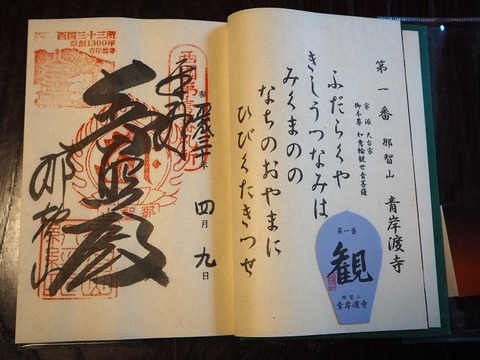 第一番 那智山 青岸渡寺
宗派 天台宗
御本尊 如意輪観世音菩薩
ふだらくや
きしうつなみは
みくまのの
なちのおやまに
ひびくたきつせ
第一番
観
那智山
青岸渡寺
西国三十三所
草創1300年
青岸渡寺
奉拝
四月九日
普照殿
那智山